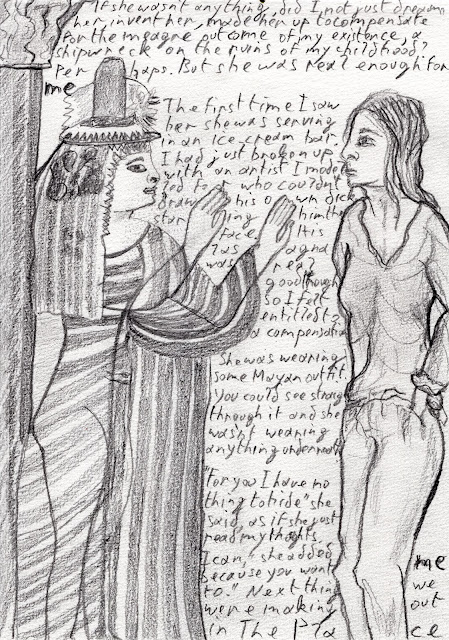 If she wasn't anything, did I not just dream
her, invent her, made her up to compensate
for the meagre outcome of my existence, a
shipwreck on the ruins of my childhood?
Per haps. But she was real enough for
me
The first time I saw
her she was serving
in an ice cream bar
I had just broken up
with an artist I model
led for who couldnt
draw his own dick
star ing him the
face. His
was
good though
so I felt
entitled t?
a compensation
She was wearing
some Mayan outfit.
You could see straigh
through it and she
wasn't wearing
anything underneath
"For you I have no
thing to hide" she
said, as if she just
read my thoghts.
I can," she added,
because you want
to." Next thing
were making me
we
out
in The Pla ce